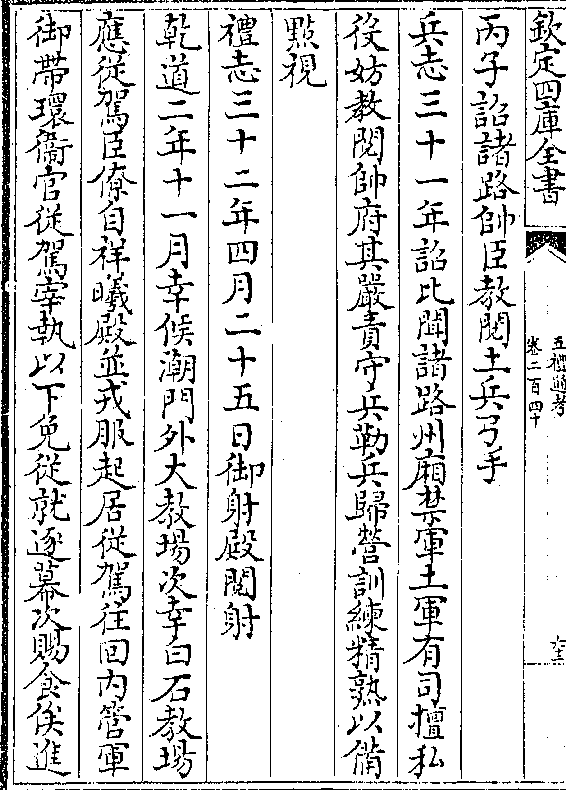 欽定四庫全書
五禮通考
卷二百四十
丙子詔諸路帥臣教閱土兵弓手
兵志三十一年詔比聞諸路州廂禁軍土軍有司擅私
役妨教閱帥府其嚴責守兵勒兵歸營訓練精熟以備
點視
禮志三十二年四月二十五日御射殿閱射
乾道二年十一月幸候潮門外大教場次幸白石教場
應從駕臣僚自祥曦殿並戎服起居從駕往回內管軍
御帶環衞官從駕宰執以下免從就逐幕次賜食俟進